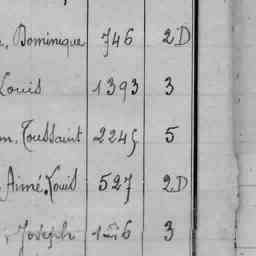 , Dominique 746 2D
Louis 1393 3
m, Toussaint 2245 5
Aimé, Louis 527 2D
, Joseph 3